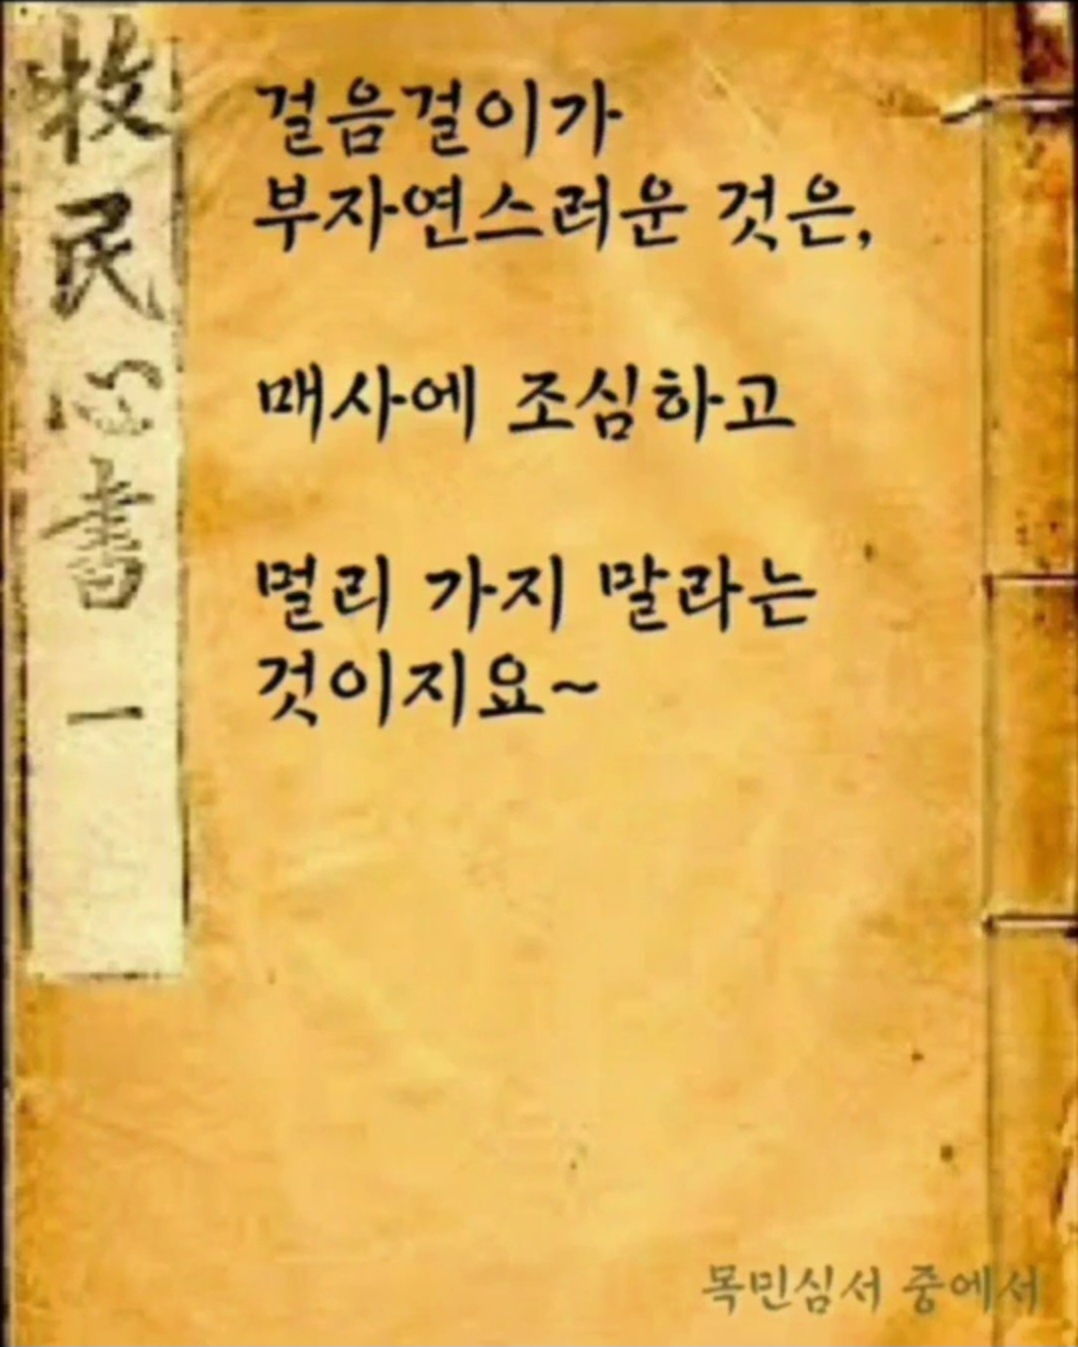 牧民心書 一
걸음걸이가
부자연스러운 것은,
매사에 조심하고
멀리 가지 말라는
것이지요~
목민심서 중에서